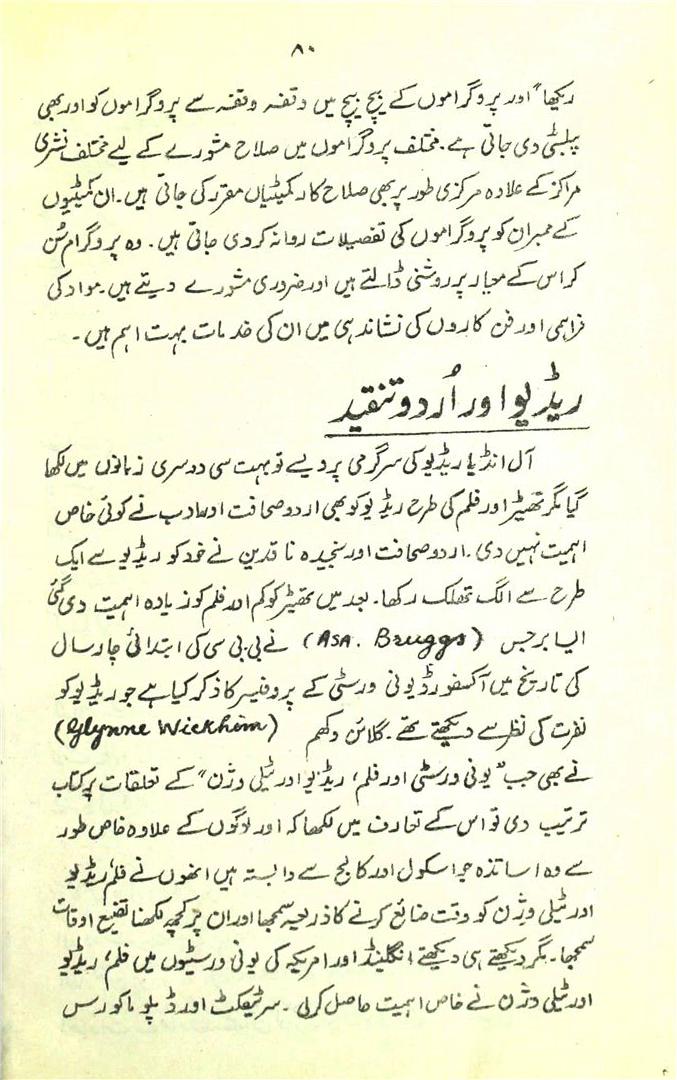 ۸۰
رکھا" اور پروگراموں کے بیچ بیچ میں وقفہ وقفہ سے پروگراموں کو اور بھی
پبلسٹی دی جاتی ہے۔ مختلف پروگراموں میں صلاح مشورے کے لیے مختلف نشری
مراکز کے علاوہ مرکزی طور پر بھی صلاح کار کمیٹیاں مقرر کی جاتی ہیں۔ ان کمیٹیوں
کے ممبران کو پروگراموں کی تفصیلات روانہ کر دی جاتی ہیں۔ وہ پروگرام سُن
کر اس کے معیار پر روشنی ڈالتے ہیں اور ضروری مشورے دیتے ہیں۔ مواد کی
فراہمی اور فن کاروں کی نشاندہی میں ان کی خدمات بہت اہم ہیں۔
ریڈیو اور اُردو تنقید
آل انڈیا ریڈیو کی سرگرمی پر ویسے تو بہت سی دوسری زبانوں میں لکھا
گیا مگر تھیٹر اور فلم کی طرح ریڈیو کو بھی اردو صحافت اور ادب نے کوئی خاص
اہمیت نہیں دی۔ اردو صحافت اور سنجیدہ ناقدین نے خود کو ریڈیو سے ایک
طرح سے الگ تھلگ رکھا۔ بعد میں تھیٹر کو کم اور فلم کو زیادہ اہمیت دی گئی
ایسا برجس (Asa. Bruggs) نے بی بی سی کی ابتدائی چار سال
کی تاریخ میں آکسفورڈ یونی ورسٹی کے پروفیسر کا ذکر کیا ہے جو ریڈیو کو
نفرت کی نظر سے دیکھتے تھے۔ گلائن وکھم (Glynne Wickhim)
نے بھی جب "یونی ورسٹی اور فلم، ریڈیو اور ٹیلی وژن" کے تعلقات پر کتاب
ترتیب دی تو اس کے تعارف میں لکھا کہ اور لوگوں کے علاوہ خاص طور
سے وہ اساتذہ جو اسکول اور کالج سے وابستہ ہیں انھوں نے فلم، ریڈیو
اور ٹیلی وژن کو وقت ضائع کرنے کا ذریعہ سمجھا اور ان پر کچھ لکھنا تضیع اوقات
سمجھا۔ مگر دیکھتے ہی دیکھتے انگلینڈ اور امریکہ کی یونی ورسٹیوں میں فلم، ریڈیو
اور ٹیلی وژن نے خاص اہمیت حاصل کر لی۔ سرٹیفکٹ اور ڈپلوما کورس